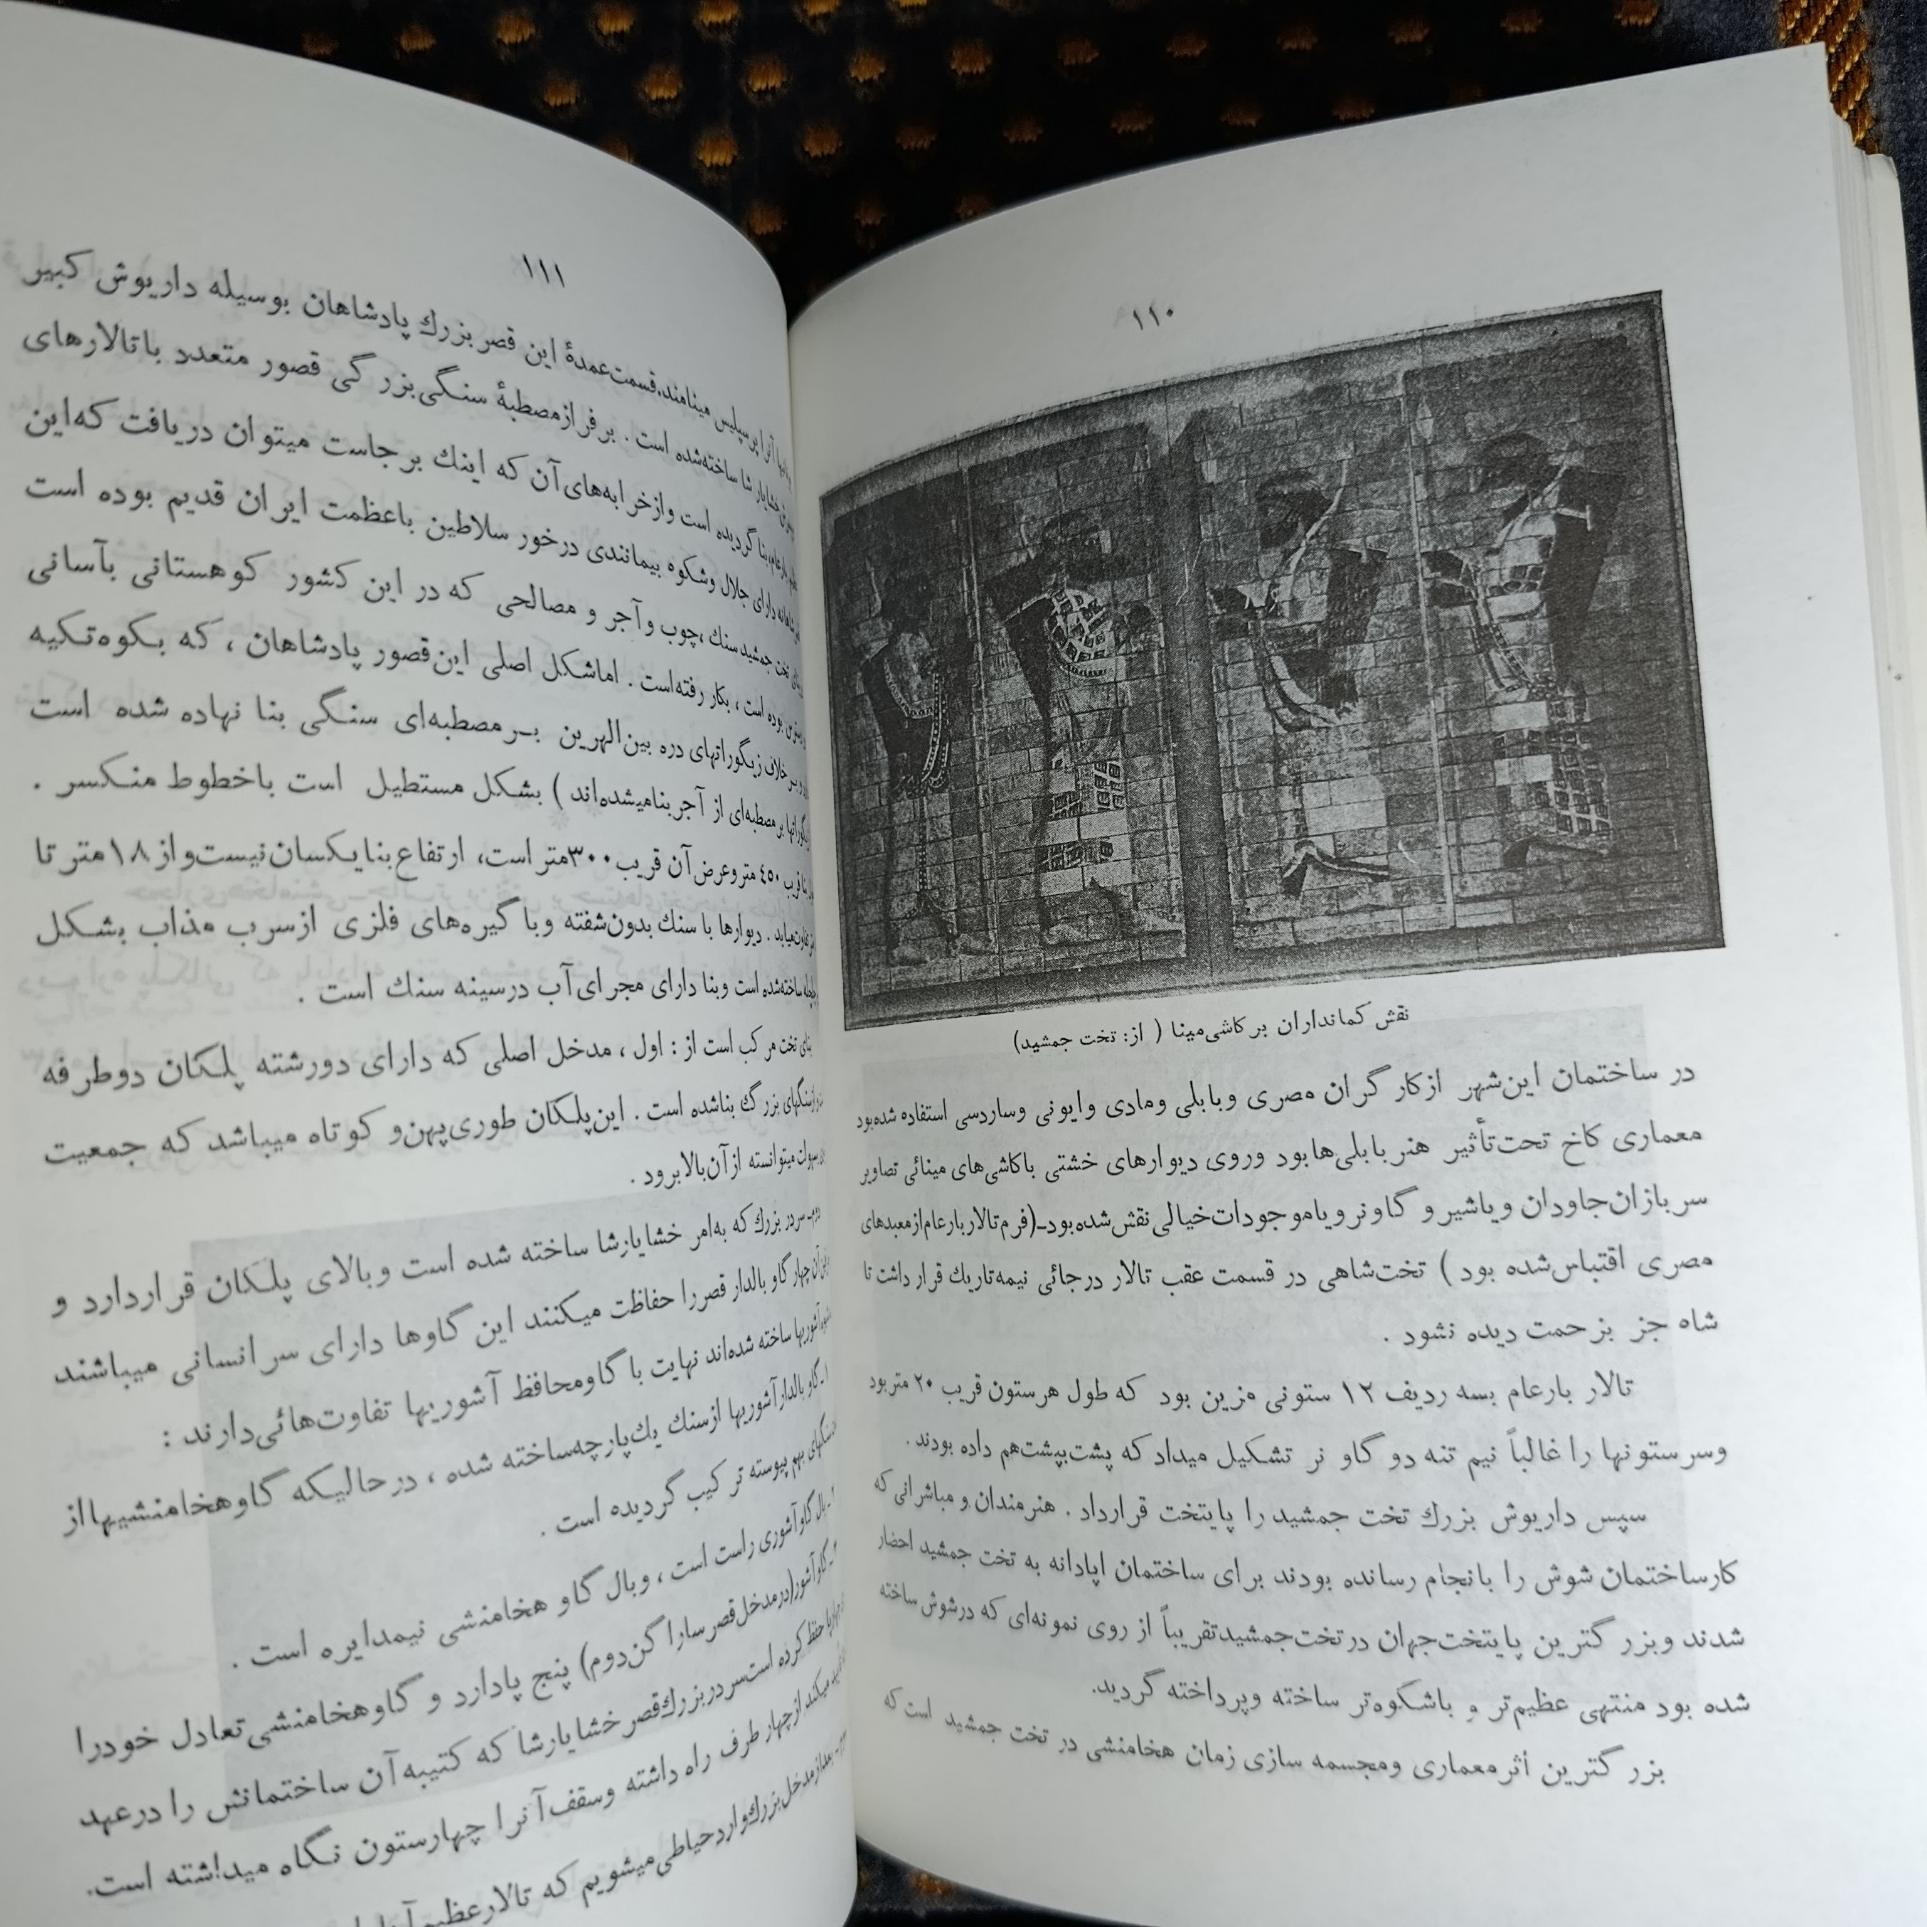 ۱۱۰
نقش کمانداران بر کاشی‌مینا ( از: تخت جمشید)
در ساختمان این‌شهر از کارگران مصری و بابلی و مادی و ایونی و ساردسی استفاده شده‌بود
معماری کاخ تحت‌تأثیر هنر بابلی‌ها بود و روی دیوارهای خشتی با کاشی‌های مینائی تصاویر
سربازان جاودان و یا شیر و گاو نر و یا موجودات خیالی نقش شده بود-(فرم تالار بار عام از معبدهای
مصری اقتباس شده بود ) تخت‌شاهی در قسمت عقب تالار در جائی نیمه تاریك قرار داشت تا
شاه جز بزحمت دیده نشود .
تالار بارعام بسه ردیف ۱۲ ستونی مزین بود که طول هر ستون قریب ۲۰ متر بود
و سر ستونها را غالباً نیم تنه دو گاو نر تشکیل میداد که پشت‌بپشت هم داده بودند .
سپس داریوش بزرك تخت جمشید را پایتخت قرارداد . هنرمندان و مباشرانی که
کار ساختمان شوش را بانجام رسانده بودند برای ساختمان اپادانه به تخت جمشید احضار
شدند و بزرگترین پایتخت جهان در تخت‌جمشید تقریباً از روی نمونه‌ای که در شوش ساخته
شده بود منتهی عظیم‌تر و باشکوه‌تر ساخته و پرداخته گردید.
بزرگترین أثر معماری و مجسمه سازی زمان هخامنشی در تخت جمشید است که
۱۱۱
آنرا پرسپلیس مینامند. قسمت عمدهٔ این قصر بزرك پادشاهان بوسیله داریوش کبیر
خشایارشا ساخته شده است . بر فراز مصطبهٔ سنگی بزرگی قصور متعدد با تالارهای
بنا گردیده است و از خرابه‌های آن که اینك برجاست میتوان دریافت که این
دارای جلال و شکوه بیمانندی درخور سلاطین باعظمت ایران قدیم بوده است
تخت جمشید سنك ، چوب و آجر و مصالحی که در این کشور کوهستانی بآسانی
بوده است ، بکار رفته است . اما شکل اصلی این قصور پادشاهان ، که بکوه تکیه
و بر خلاف زیگوراتهای دره بین‌النهرین بر مصطبه‌ای سنگی بنا نهاده شده است
بر مصطبه‌ای از آجر بنا میشده‌اند ) بشکل مستطیل است با خطوط منکسر .
قریب ۴۵۰ متر و عرض آن قریب ۳۰۰ متر است، ارتفاع بنا یکسان نیست و از ۱۸ متر تا
دیوارها با سنك بدون شفته و با گیره‌های فلزی از سرب مذاب بشکل
ساخته شده است و بنا دارای مجرای آب در سینه سنك است .
بنای تخت مرکب است از : اول ، مدخل اصلی که دارای دو رشته پلکان دو طرفه
سنگهای بزرگ بنا شده است . این پلکان طوری پهن و کوتاه میباشد که جمعیت
میتوانسته از آن بالا برود .
دوم- سر در بزرك که به امر خشایارشا ساخته شده است و بالای پلکان قرار دارد و
آن چهار گاو بالدار قصر را حفاظت میکنند این گاوها دارای سر انسانی میباشند
آشوریها ساخته شده‌اند نهایت با گاو محافظ آشوریها تفاوت‌هائی دارند :
۱-گاو بالدار آشوریها از سنك یك‌پارچه ساخته شده ، در حالیکه گاو هخامنشیها از
سنگهای بهم پیوسته ترکیب گردیده است .
۲- بال گاو آشوری راست است ، و بال گاو هخامنشی نیمدایره است .
گاو آشور (در مدخل قصر سارا گن دوم) پنج پا دارد و گاو هخامنشی تعادل خود را
حفظ کرده است سر در بزرك قصر خشایارشا که کتیبه آن ساختمانش را در عهد
میکند از چهار طرف راه داشته و سقف آنرا چهارستون نگاه میداشته است.
بعد از مدخل بزرك وارد حیاطی میشویم که تالار عظیم